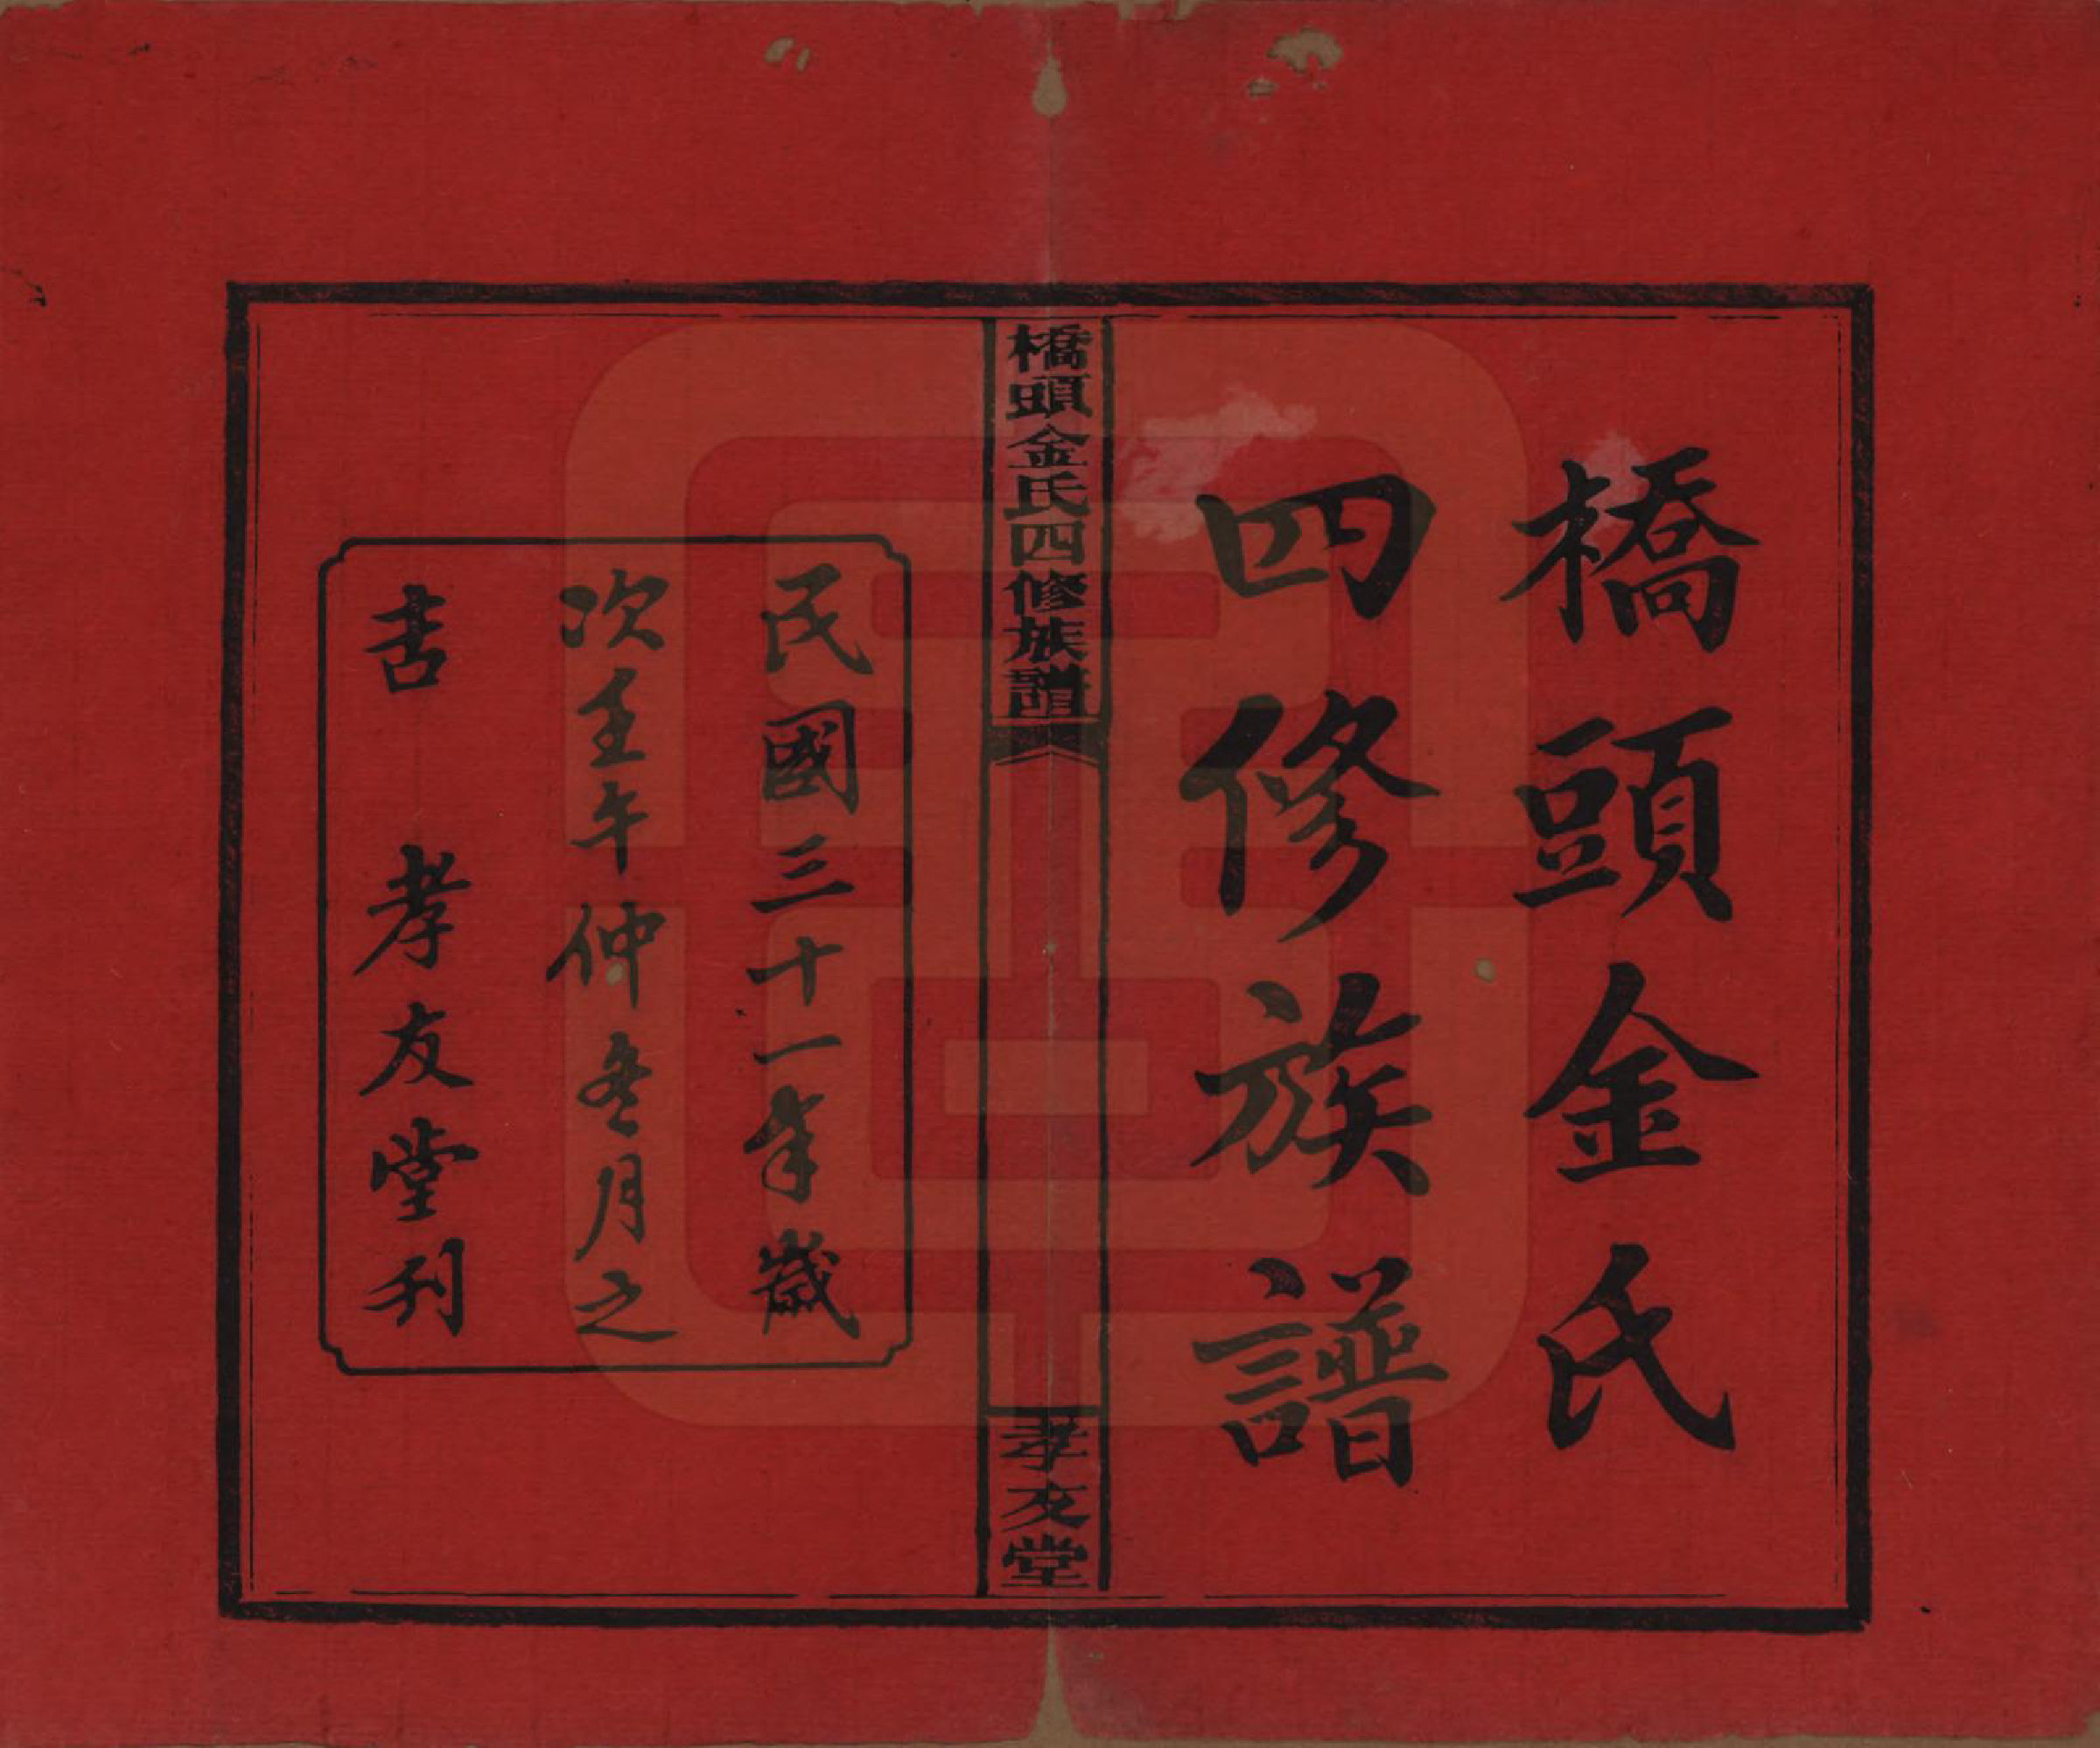 橋頭金氏
四修族譜
橋頭金氏四修族譜
孝友堂
民國三十一年歲
次壬午仲冬月之
吉　孝友堂刊